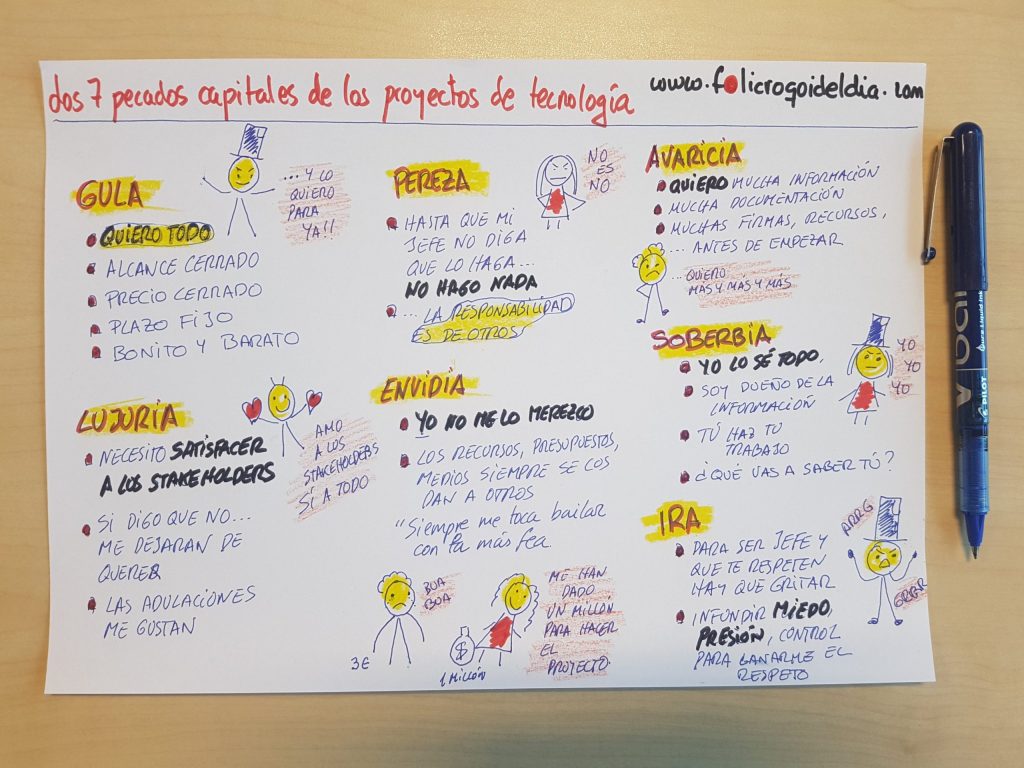 Los 7 pecados capitales de los proyectos de tecnología
www.folicrogoideldia.com
GULA
QUIERO TODO
ALCANCE CERRADO
PRECIO CERRADO
PLAZO FIJO
BONITO Y BARATO
... Y LO
QUIERO
PARA
YA!!
LUJURIA
NECESITO SATISFACER
A LOS STAKEHOLDERS
SI DIGO QUE NO...
ME DEJARAN DE
QUERER
LAS ADULACIONES
ME GUSTAN
AMO
A LOS
STAKEHOLDERS
SÍ A TODO
PEREZA
HASTA QUE MI
JEFE NO DIGA
QUE LO HAGA...
NO HAGO NADA
... LA RESPONSABILIDAD
ES DE OTROS
NO
ES
NO
ENVIDIA
YO NO ME LO MEREZCO
LOS RECURSOS, PRESUPUESTOS,
MEDIOS SIEMPRE SE LOS
DAN A OTROS
"Siempre me toca bailar
con la más fea
BUA
BUA
3€
$
1 MILLÓN
ME HAN
DADO
UN MILLON
PARA HACER
EL
PROYECTO
AVARICIA
QUIERO MUCHA INFORMACIÓN
MUCHA DOCUMENTACIÓN
MUCHAS FIRMAS, RECURSOS,
... ANTES DE EMPEZAR
... QUIERO
MÁS Y MÁS Y MÁS
SOBERBIA
YO LO SÉ TODO,
SOY DUEÑO DE LA
INFORMACIÓN
TÚ HAZ TU
TRABAJO
¿QUÉ VAS A SABER TÚ?
YO
YO
YO
IRA
PARA SER JEFE Y
QUE TE RESPETEN
HAY QUE GRITAR
INFUNDIR MIEDO,
PRESIÓN, CONTROL
PARA GANARME EL
RESPETO
ARRG
GRRR
VBall
PILOT
Pure Liquid Ink